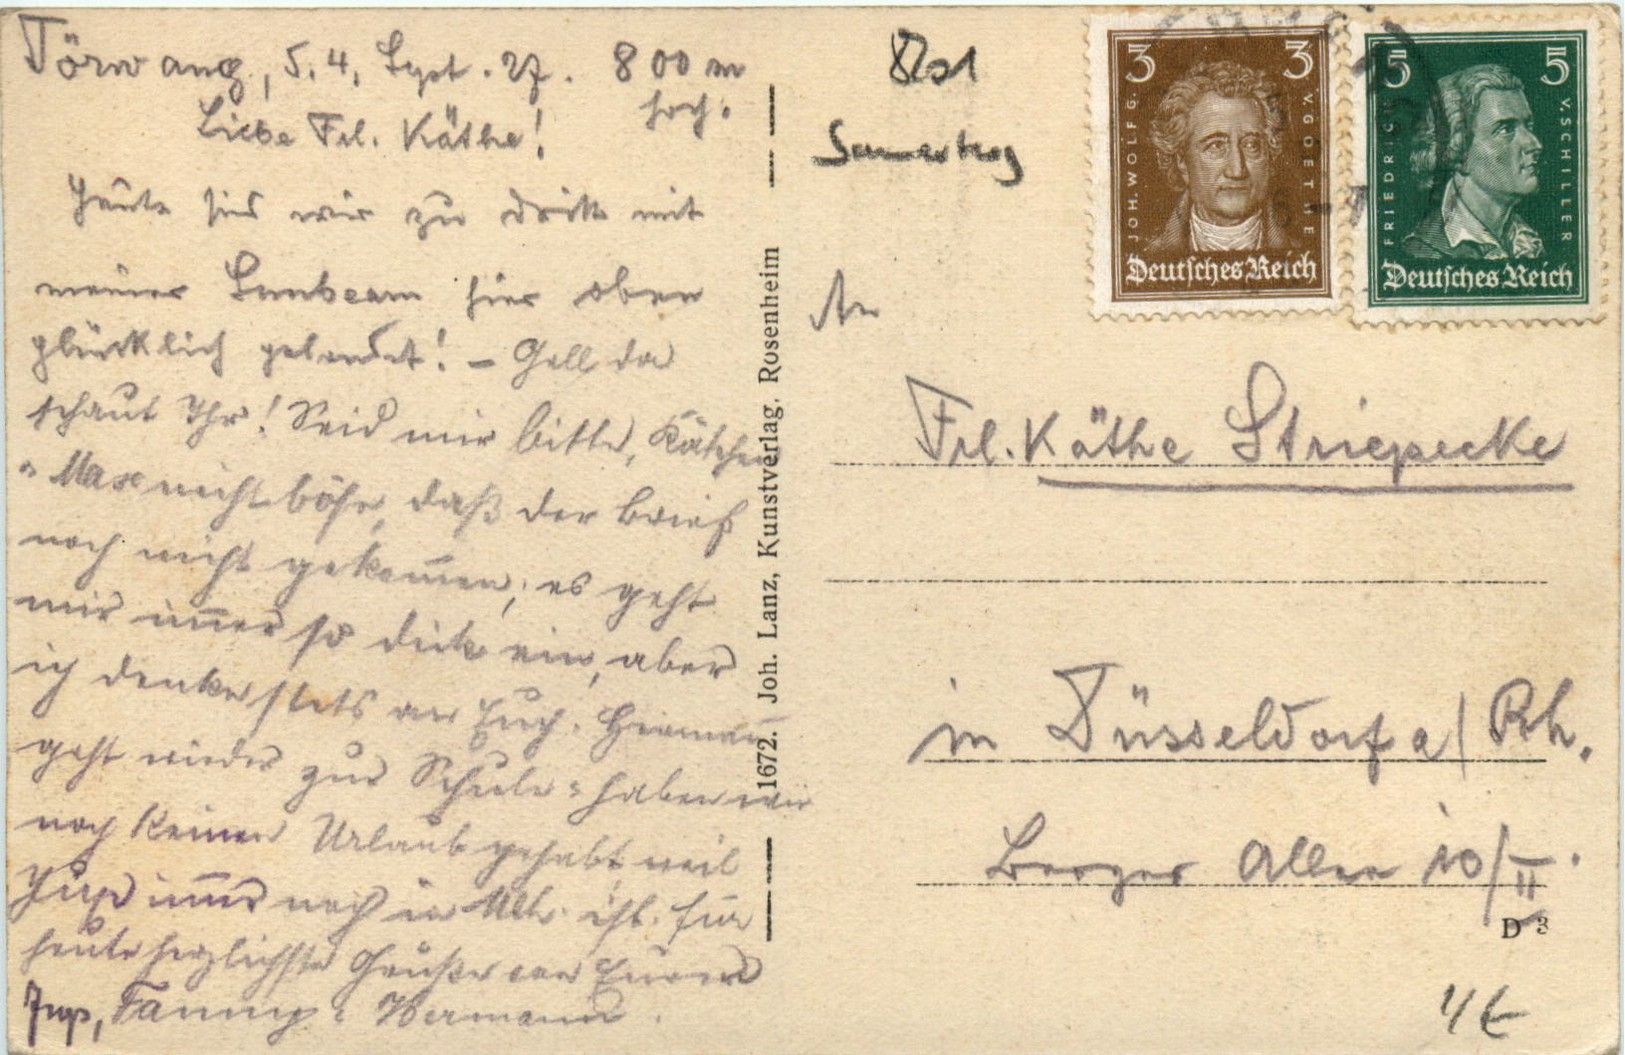 Törwang, S. 4. Sept. 27. 800 m
hoch.
Liebe Frl. Käthe!
Heute sind wir zu dritt mit
meiner Sunbeam hier oben
glücklich gelandet! – Gell da
schaut Ihr! Seid mir bitte, Käthchen
u. Max nicht böse, daß der Brief
noch nicht gekom̅en, es geht
mir im̅er so ein, aber
ich denke stets an Euch. Hermann
geht wieder zur Schule, haben wir
noch keinen Urlaub gehabt weil
im̅er noch in ist. Für
heute herzlichste Grüße von Euren
Jup, Fanny u. Hermann.
1672. Joh. Lanz, Kunstverlag. Rosenheim
3 3
JOH. WOLFG. V. GOETHE
Deutsches Reich
5 5
FRIEDRICH V. SCHILLER
Deutsches Reich
An
Frl. Käthe Striepecke
in Düsseldorf a/Rh.
Berger Allee 10/II.
D 3